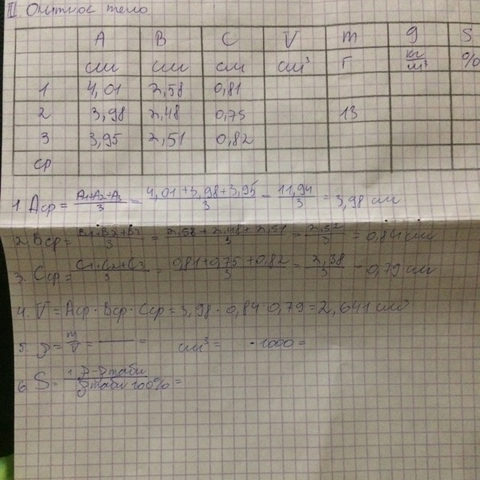 II Опытное тело
A B C V m g S
см см см см³ г кг/м³ %
1 4,01 2,58 0,81
2 3,98 2,48 0,75 13
3 3,95 2,51 0,82
ср
1. Aср = A₁+A₂+A₃/3 = 4,01+3,98+3,95/3 = 11,94/3 = 3,98 см
2. Bср = B₁+B₂+B₃/3 = 2,52+2,48+2,51/3 = 2,52/3 = 0,84 см
3. Cср = C₁+C₂+C₃/3 = 0,81+0,75+0,82/3 = 2,38/3 = 0,79 см
4. V = Aср · Bср · Cср = 3,98 · 0,84 · 0,79 = 2,641 см³
5. ρ = m/V = = см³ = · 1000 =
6. S = ρ-ρтабл/ρтабл 100% =